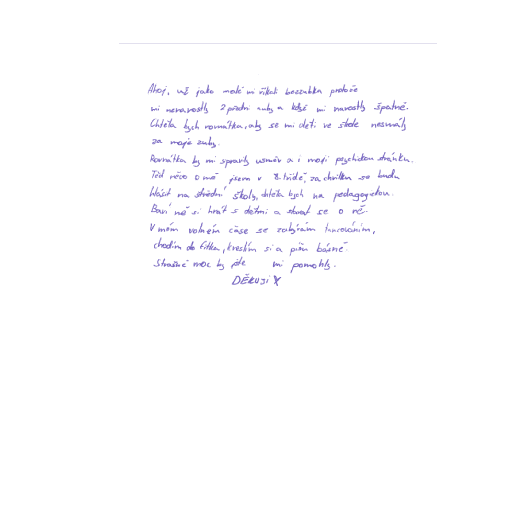 Ahoj, už jako malé mi říkali bezzubka protože
mi nenarostly 2 přední zuby a když mi narostly špatně.
Chtěla bych rovnátka, aby se mi děti ve škole nesmály
za moje zuby.
Rovnátka by mi spravily úsměv a i moji psychickou stránku.
Teď něco o mě jsem v 8. třídě, za chvilku se budu
hlásit na střední školy, chtěla bych na pedagogickou.
Baví mě si hrát s dětmi a starat se o ně.
V mém volném čase se zabývám tancováním,
chodím do fitka, kreslím si a píšu básně.
Strašně moc by jste mi pomohly.
DĚKUJI